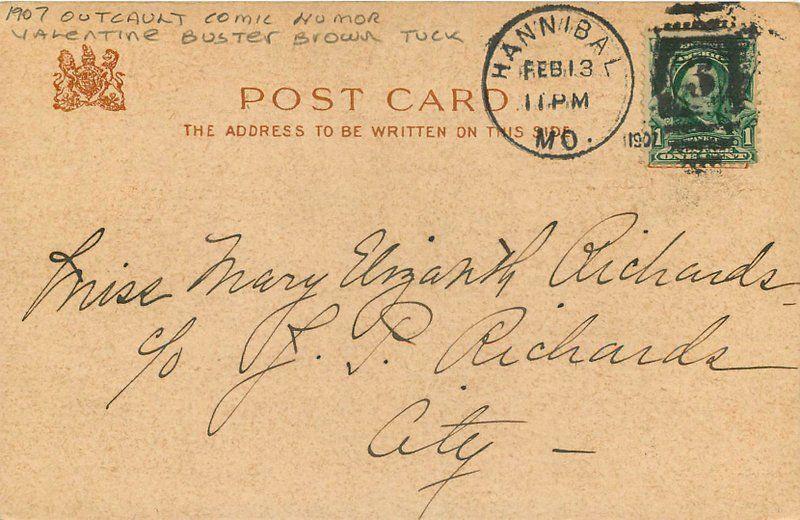 1907 OUTCAULT COMIC HUMOR
VALENTINE BUSTER BROWN TUCK
POST CARD.
THE ADDRESS TO BE WRITTEN ON THIS SIDE
HANNIBAL
FEB 13
11 PM
MO.
1907
1 1
ONE CENT
Miss Mary Elizabeth Richards
c/o J. P. Richards
City -